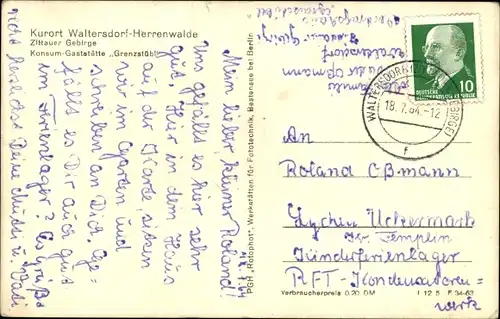 Kurort Waltersdorf-Herrenwalde
Zittauer Gebirge
Konsum-Gaststätte „Grenzstübl"
17.7.64
Mein lieber kleiner Roland!
Uns gefällt es hier sehr
gut. Hier in dem Haus
auf der Karte sitzen
wir im Garten und
schreiben an Dich. Ge-
fällt es Dir auch gut
im Ferienlager? Es grüßt
recht herzlichst Deine Mutti u. Vati
PGH „Rotophot", Werkstätten für Fototechnik, Bestensee bei Berlin
Waltersdorf
DEUTSCHE
DEMOKRATISCHE REPUBLIK
10
WALTERSDORF
18.7.64.-12
f
An
Roland Oßmann
Lychen Uckermark
Kr. Templin
Kinderferienlager
RFT-Kondensatoren-
werk
Verbraucherpreis 0.20 DM I 12 5 F 34-63